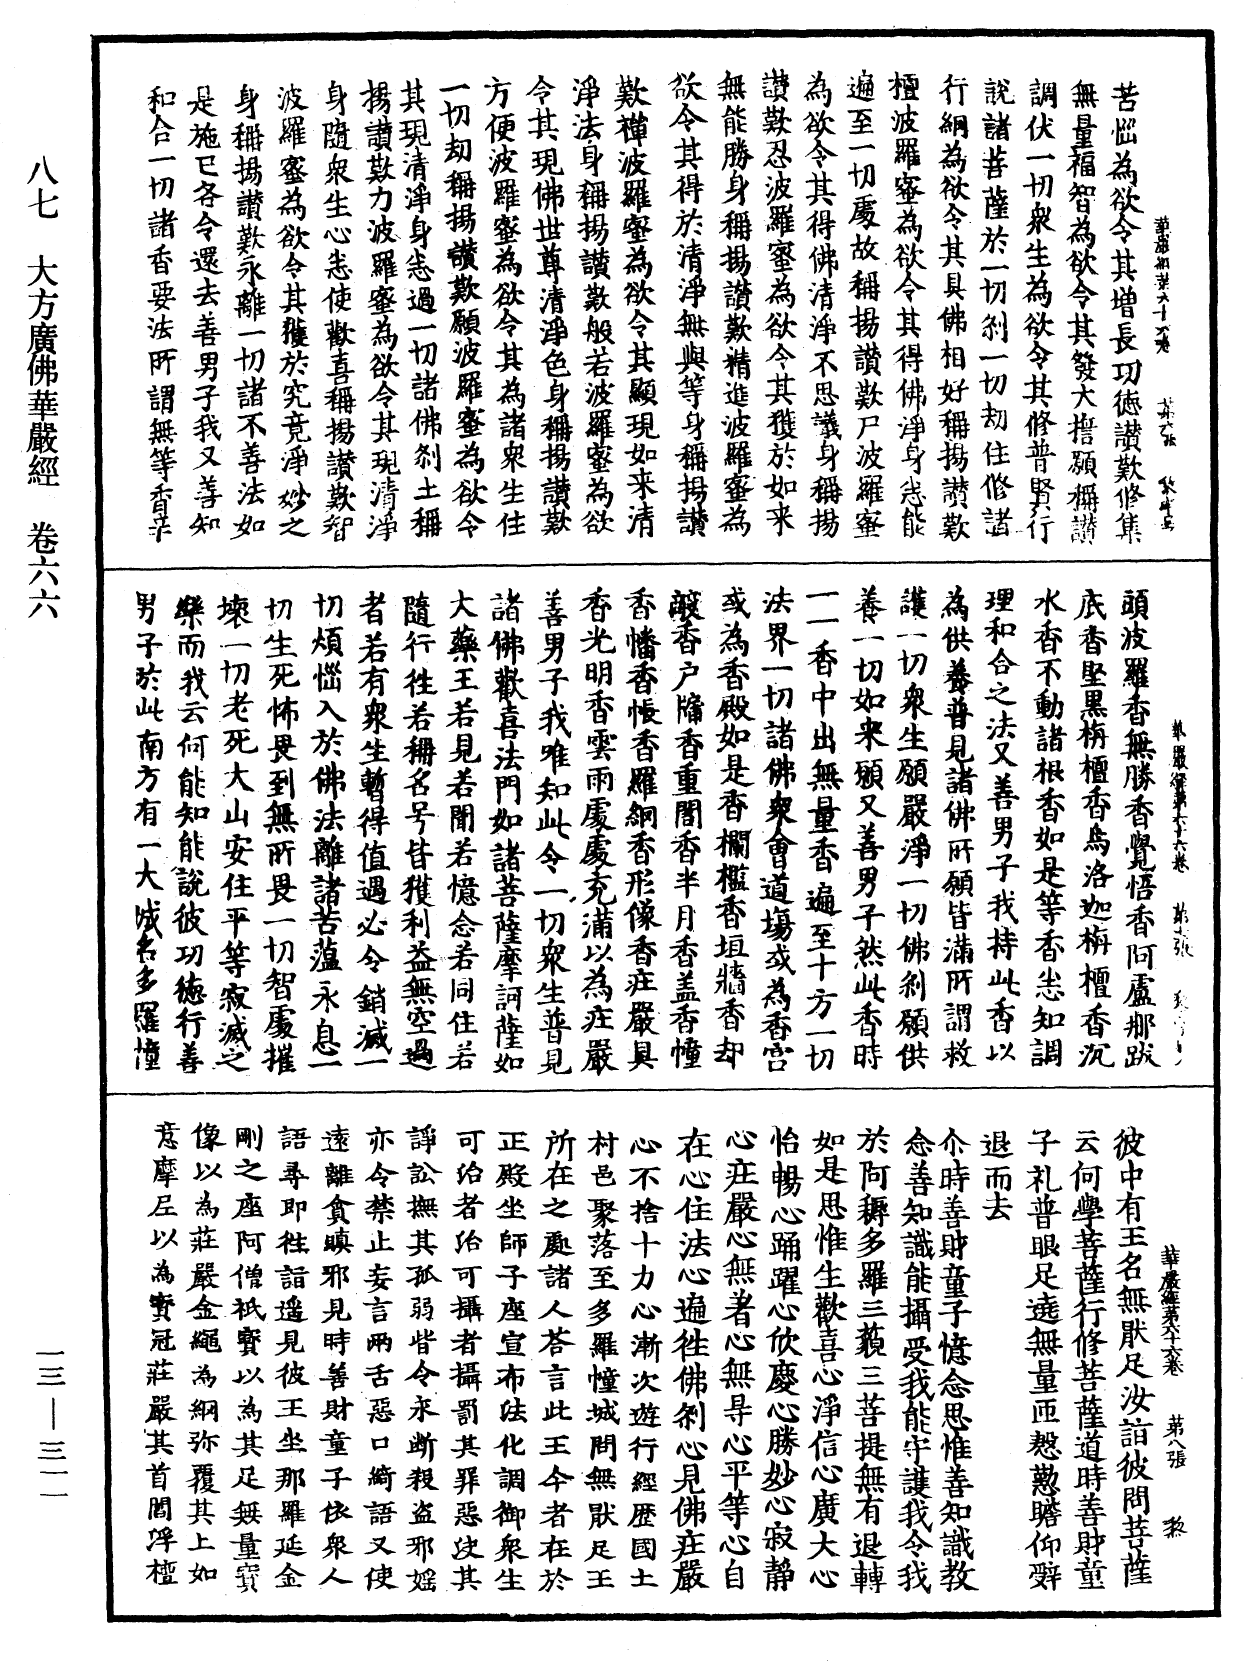 八七　大方廣佛華嚴經　卷六六
一三—三一一
苦惱為欲令其增長功德讚歎修集
無量福智為欲令其發大擔願稱讚
調伏一切衆生為欲令其修普賢行
說諸菩薩於一切剎一切劫住修諸
行網為欲令其具佛相好稱揚讚歎
檀波羅蜜為欲令其得佛淨身悉能
遍至一切處故稱揚讚歎尸波羅蜜
為欲令其得佛清淨不思議身稱揚
讚歎忍波羅蜜為欲令其獲於如來
無能勝身稱揚讚歎精進波羅蜜為
欲令其得於清淨無與等身稱揚讚
歎禪波羅蜜為欲令其顯現如来清
淨法身稱揚讚歎般若波羅蜜為欲
令其現佛世尊清淨色身稱揚讚歎
方便波羅蜜為欲令其為諸衆生住
一切劫稱揚讚歎願波羅蜜為欲令
其現清淨身悉過一切諸佛剎土稱
揚讚歎力波羅蜜為欲令其現清淨
身隨衆生心悉使歡喜稱揚讚歎智
波羅蜜為欲令其獲於究竟淨妙之
身稱揚讚歎永離一切諸不善法如
是施已各令還去善男子我又善知
和合一切諸香要法所謂無等香辛
華嚴經第六十六卷　第七張
頭波羅香無勝香覺悟香阿盧那跋
底香堅黑栴檀香烏洛迦栴檀香沉
水香不動諸根香如是等香悉知調
理和合之法又善男子我持此香以
為供養普見諸佛所願皆滿所謂救
護一切衆生願嚴淨一切佛剎願供
養一切如來願又善男子然此香時
一一香中出無量香遍至十方一切
法界一切諸佛衆會道場或為香宮
或為香殿如是香欄檻香垣牆香却
敵香户牖香重閣香半月香盖香幢
香幡香帳香羅網香形像香莊嚴具
香光明香雲雨處處充滿以為莊嚴
善男子我唯知此令一切衆生普見
諸佛歡喜法門如諸菩薩摩訶薩如
大藥王若見若聞若憶念若同住若
隨行往若稱名号皆獲利益無空過
者若有衆生暫得值遇必令銷滅一
切煩惱入於佛法離諸苦蘊永息一
切生死怖畏到無所畏一切智處摧
壞一切老死大山安住平等寂滅之
樂而我云何能知能說彼功德行善
男子於此南方有一大城名多羅幢
華嚴經第六十六卷　第八張
彼中有王名無厭足汝詣彼問菩薩
云何學菩薩行修菩薩道時善財童
子礼普眼足遶無量匝慇懃瞻仰辭
退而去
尒時善財童子憶念思惟善知識教
念善知識能攝受我能守護我令我
於阿耨多羅三藐三菩提無有退轉
如是思惟生歡喜心淨信心廣大心
怡暢心踊躍心欣慶心勝妙心寂静
心莊嚴心無著心無㝵心平等心自
在心住法心遍徃佛剎心見佛莊嚴
心不捨十力心漸次遊行經歷國土
村邑聚落至多羅幢城問無厭足王
所在之處諸人荅言此王今者在於
正殿坐師子座宣布法化調御衆生
可治者治可攝者攝罰其罪惡決其
諍訟撫其孤弱皆令永断殺盗邪婬
亦令禁止妄言兩舌惡口綺語又使
遠離貪瞋邪見時善財童子依衆人
語尋即徃詣遥見彼王坐那羅延金
剛之座阿僧祇寳以為其足無量寳
像以為莊嚴金繩為網弥覆其上如
意摩尼以為寳冠莊嚴其首閻浮檀